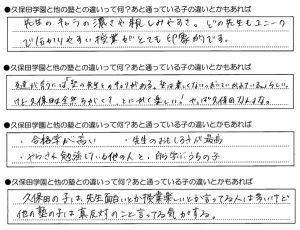 ●久保田学園と他の塾との違いって何？あと通っている子の違いとかもあれば
先生のキャラの濃さや親しみやすさ。どの先生もユニーク
で分かりやすい授業がとても印象的です。
●久保田学園と他の塾との違いって何？あと通っている子の違いとかもあれば
友達が言うには「塾の先生とのキョリがある。塾は楽しくない。
けど久保田は全然ちがくて、とにかく楽しい！やっぱ久保田なんよな。
●久保田学園と他の塾との違いって何？あと通っている子の違いとかもあれば
・合格率が高い ・先生のおもしろさが最高
・やらされ勉強している他の人と、自学にうちの子
●久保田学園と他の塾との違いって何？あと通っている子の違いとかもあれば
久保田の子は、先生面白いとか授業楽しいとか言ってる人は多いけど
他の塾の子は真反対のこと言ってる気がする。